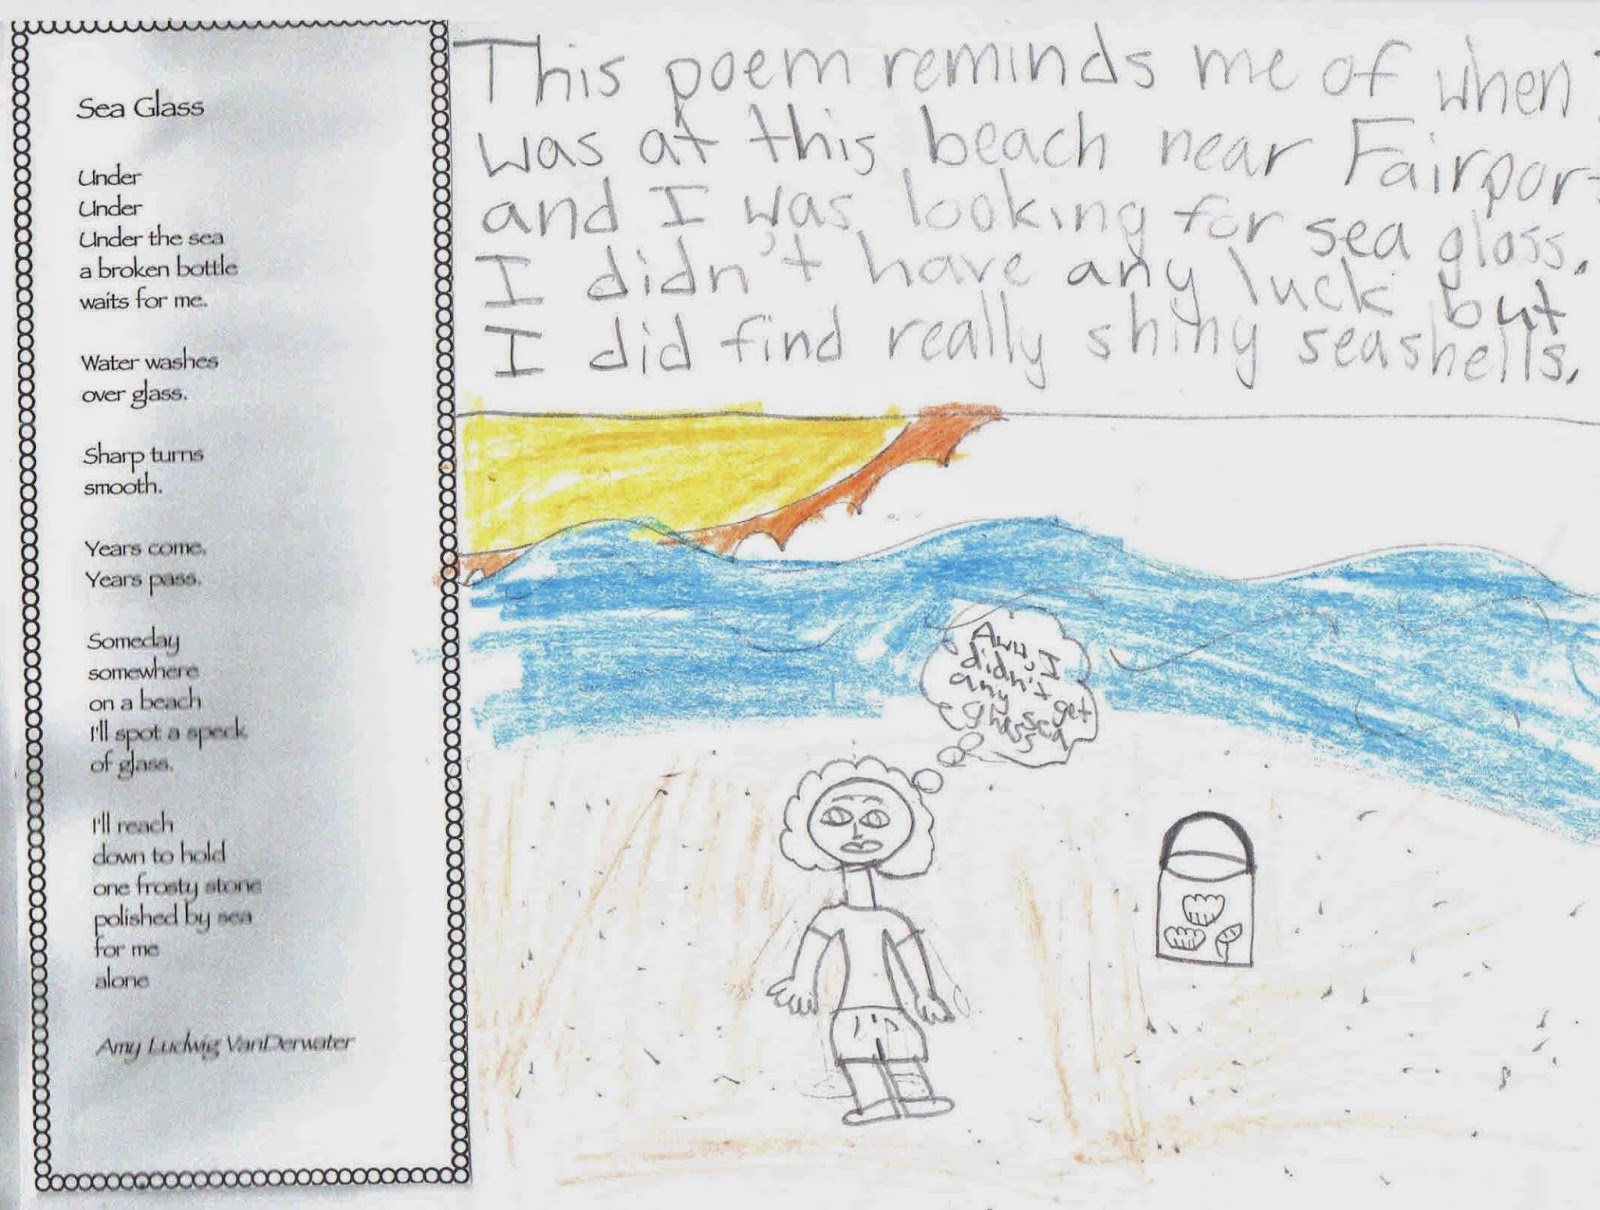 Sea Glass
Under
Under
Under the sea
a broken bottle
waits for me.
Water washes
over glass.
Sharp turns
smooth.
Years come.
Years pass.
Someday
somewhere
on a beach
I'll spot a speck
of glass.
I'll reach
down to hold
one frosty stone
polished by sea
for me
alone
Amy Ludwig VanDerwater
This poem reminds me of when I
was at this beach near Fairport
and I was looking for sea glass.
I didn't have any luck but
I did find really shiny seashells.
Aww, I
didn't
any get
sea
glass